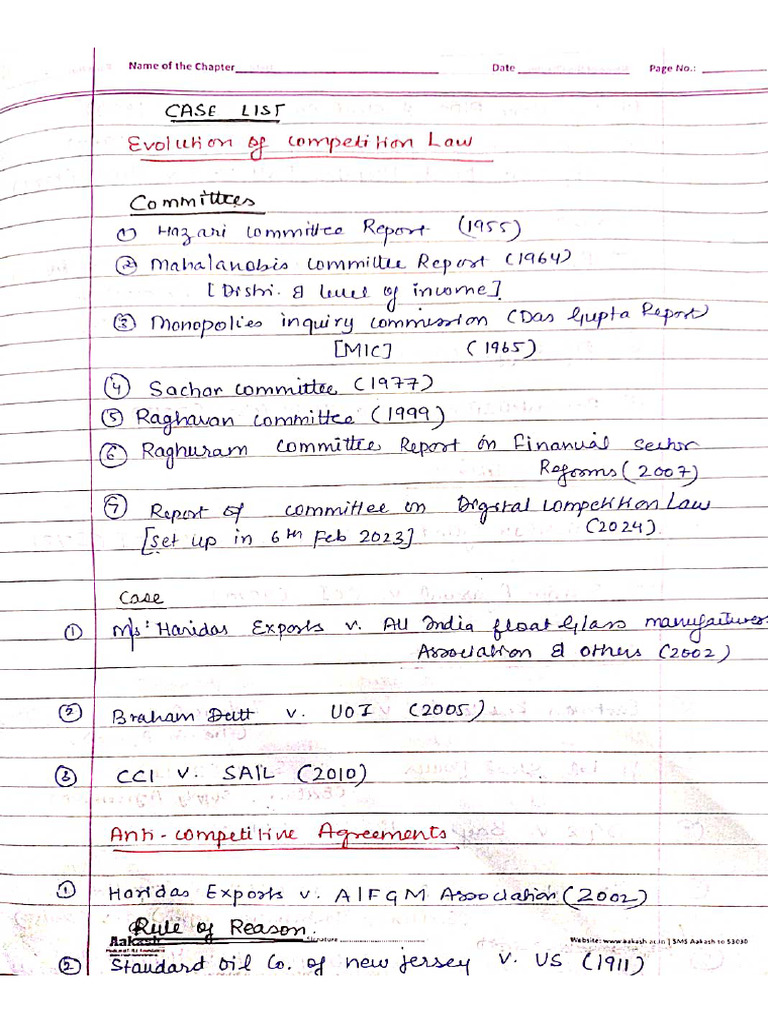 Name of the Chapter Date Page No.:
CASE LIST
Evolution of Competition Law
Committees
① Hazari Committee Report (1955)
② Mahalanobis Committee Report (1964)
[Distri. & level of income]
③ Monopolies inquiry commission (Das Gupta Report)
[MIC] (1965)
④ Sachar committee (1977)
⑤ Raghavan committee (1999)
⑥ Raghuram Committee Report on Financial Sector
Reforms (2007)
⑦ Report of committee on Digital Competition Law
[set up in 6th Feb 2023] (2024)
Case
① M/s: Haridas Exports v. All India float Glass manufacturers
Association & others (2002)
② Braham Dutt v. UOI (2005)
③ CCI v. SAIL (2010)
Anti-competitive Agreements
① Haridas Exports v. AIFGM Association (2002)
Rule of Reason.
Aakash Signature Website: www.aakash.ac.in | SMS Aakash to 53030
② Standard Oil Co. of new jersey v. US (1911)